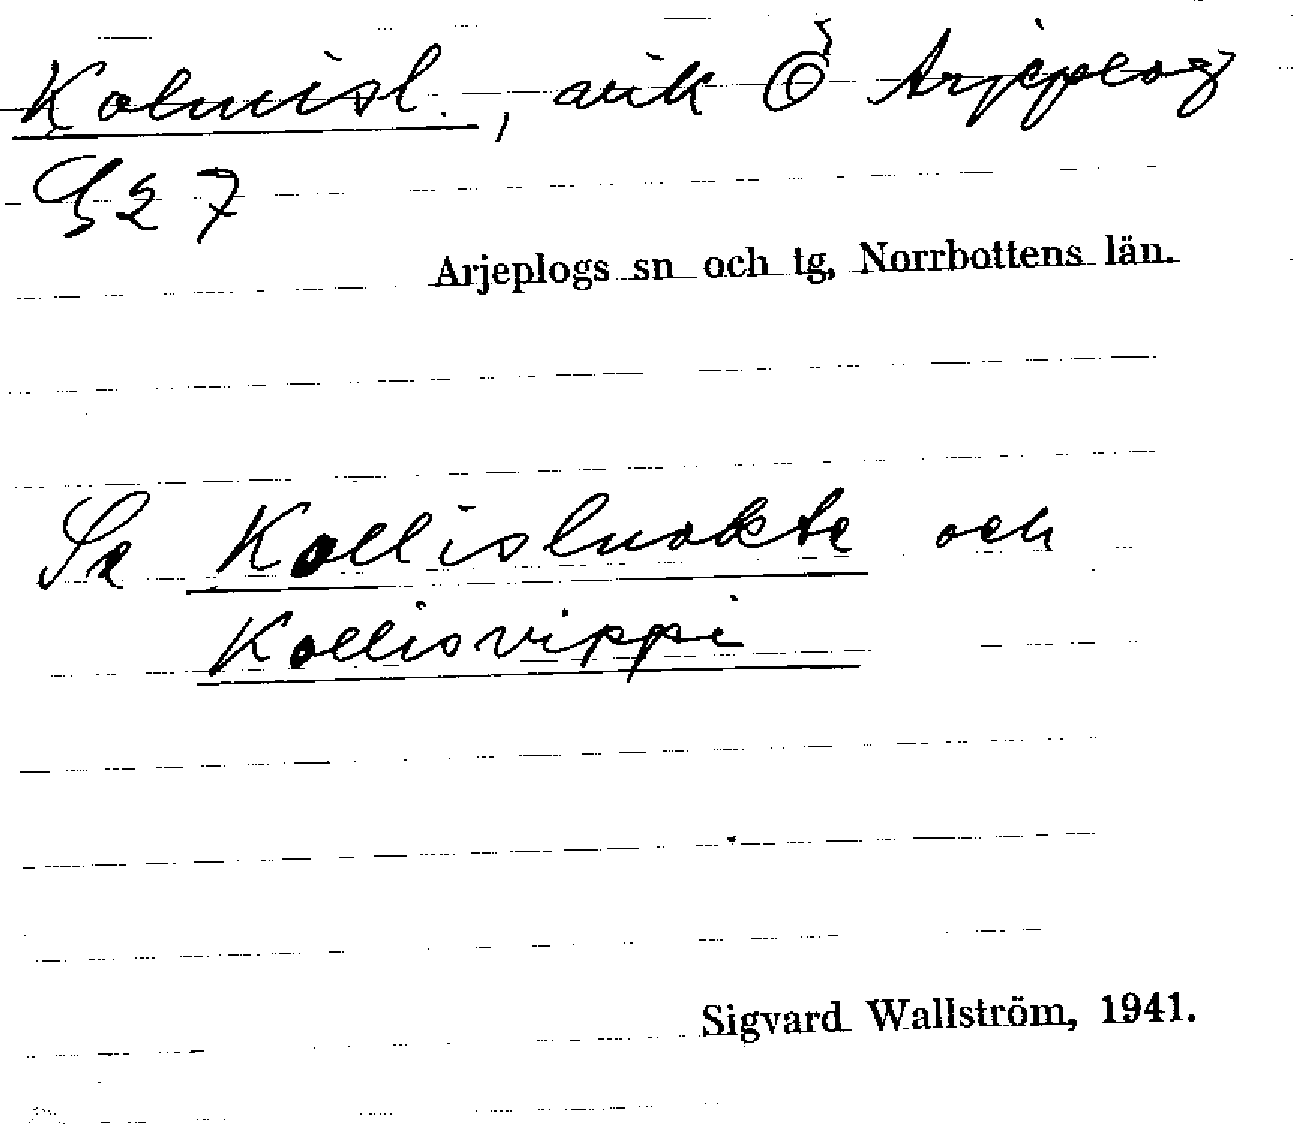 Kolmisl., avik Ö Arjeplog
G27
Arjeplogs sn och tg, Norrbottens län.
Se Kollisluokte och
Kollisvippi
Sigvard Wallström, 1941.